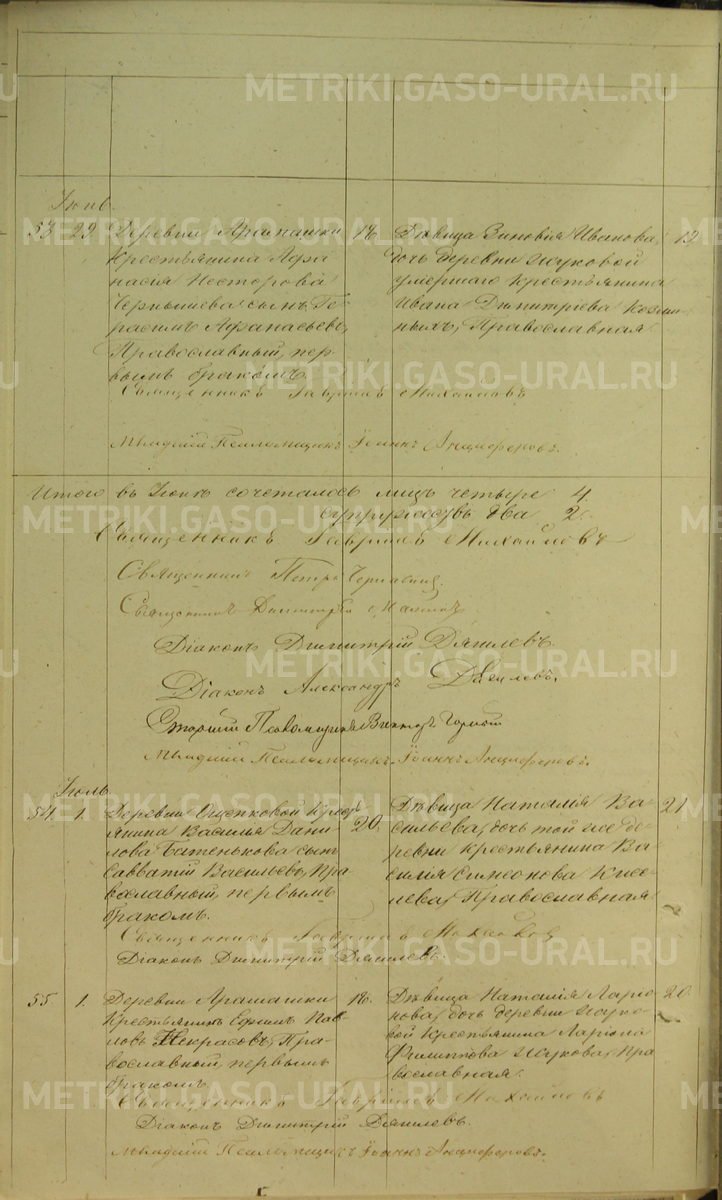 METRIKI.GASO-URAL.RU
Іюнь.
53. 29. Деревни Арамашки
Крестьянина Афа
насія Несторова
Чернышева сынъ Ге
расимъ Афанасьевъ,
Православный, пер
вымъ бракомъ.
18.
Дѣвица Зиновія Иванова,
дочь деревни Жуковой
умершаго Крестьянина
Ивана Димитріева
Православная
19
Священникъ Гавріилъ Михайловъ
Младшій Псаломщикъ Іоаннъ Анциферовъ.
Итого въ Іюнѣ сочеталось лицъ четыре 4
супружествъ два 2.
Священникъ Гавріилъ Михайловъ
Священникъ Петръ
Священникъ Димитрій
Діаконъ Димитрій Дягилевъ
Діаконъ Александръ Дягилевъ.
Старшій Псаломщикъ
Младшій Псаломщикъ Іоаннъ Анциферовъ.
Іюль.
54. 1. Деревни Ощепковой Крест
янина Василья Дани
лова Батенькова сынъ
Савватій Васильевъ, Пра
вославный, первымъ
бракомъ.
20.
Дѣвица Наталія Ва
сильева, дочь той же де
ревни Крестьянина Ва
силія Симеонова Кисе
лева, Православная
21
Священникъ Гавріилъ Михайловъ
Діаконъ Димитрій Дягилевъ.
55. 1. Деревни Арамашки
Крестьянинъ Ефимъ Пав
ловъ Некрасовъ, Пра-
вославный, первымъ
бракомъ.
18.
Дѣвица Наталія Ларіо
нова, дочь деревни Жуко-
вой Крестьянина Ларіона
Филиппова Жукова, Пра
вославная.
20.
Священникъ Гавріилъ Михайловъ
Діаконъ Димитрій Дягилевъ.
Младшій Псаломщикъ Іоаннъ Анциферовъ.